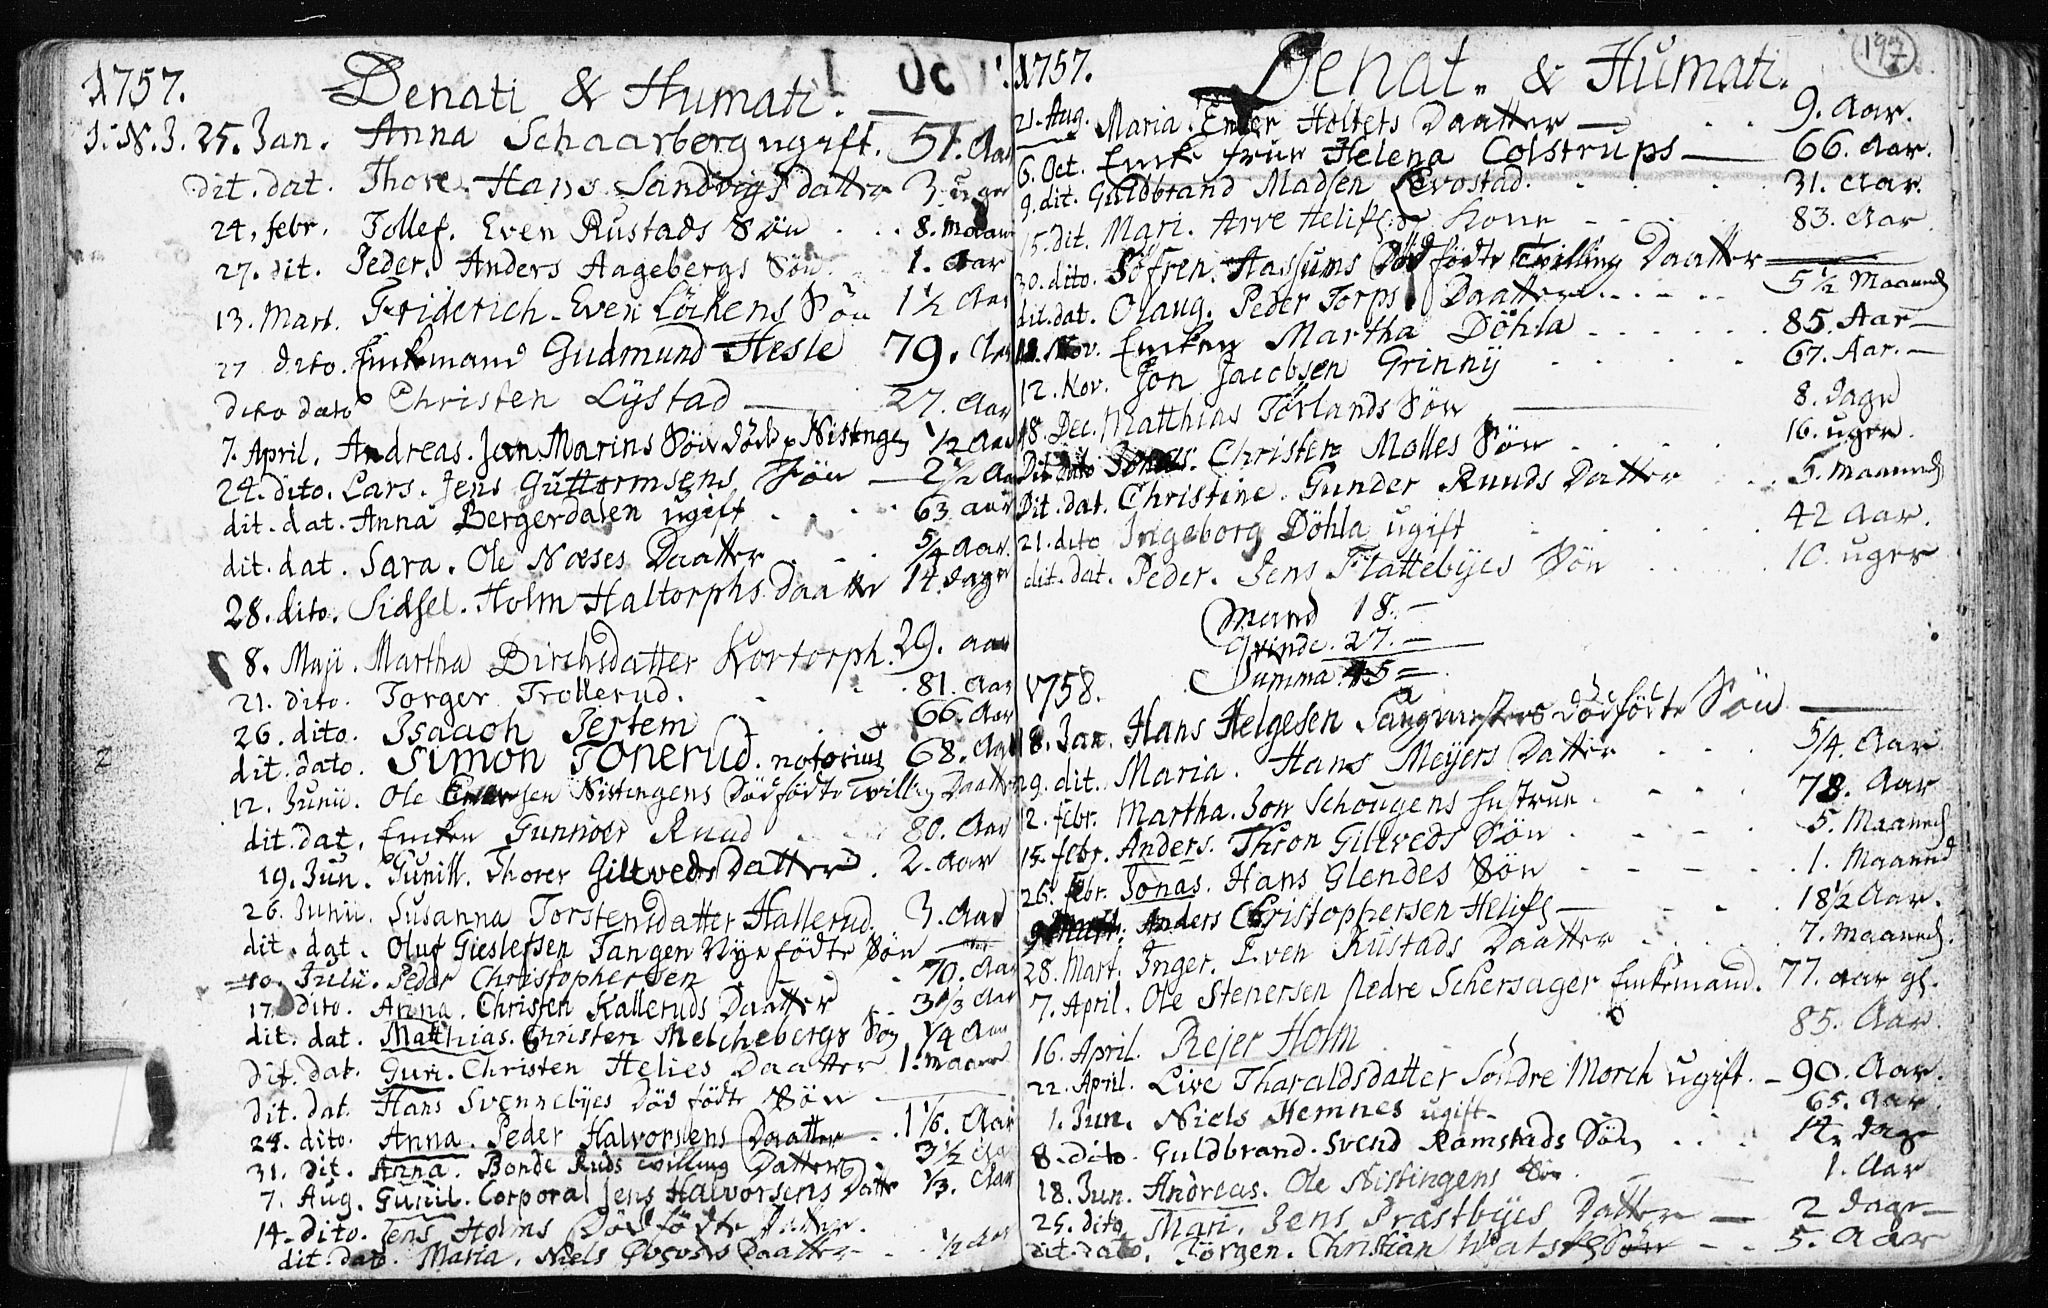 1757. Denati & Humati.
I. N. J. 25. Jan. Anna Schaarberg ugift. 51. Aar
dit. dat. Thore. Hans Sandvigs datter 3. uger
24. febr. Tollef. Even Rustads Søn . . 8. Maan
27. dit. Peder. Anders Aagebergs Søn. 1. Aar
13. Mart. Friderich. Even Løkens Søn 1 1/2 Aar
27 dito. Enkemand Gudmund Hesle 79. Aar
dito dato Christen Lÿstad — 27. Aar
7. April. Andreas. Jan Marins Søn død p Nistnge 1/2 Aar
24. dito. Lars. Jens Guttormsens Søn — 2 1/2 Aar
dit. dat. Anna Bergerdalen ugift . . . 63 aar
dit. dat. Sara. Ole Næses Daatter . . 5/4 Aar.
28. dito. Sidsel. Holm Haltorphs Daatter 14. dage
8. Maji. Martha Birchsdatter Kortorph. 29. aar
21. dito. Torger Trollerud. . . 81. Aar
26. dito. Isaach Jertem . . 66. Aar
dit. dato. Simon Tonerud. notorius 68. Aar
12. Junii. Ole Enersen Nistingens Dødfødte Tvilling Daatter
dit. dat. Enken Gunnoer Ruud . . 80. Aar
19. Jun. Gunill. Thorer Giltveds Datter . 2. Aar
26. Junii. Susanna Torstensdatter Hallerud. 3. Aar
dit. dat. Oluf Gieslefsen Tangen Nÿefødte Søn —
10. Julii. Peder Christophersen . . 70. Aar
17. dito. Anna. Christen Kalleruds Daatter . 3 1/3 Aar
dit. dat. Matthias. Christen Melchebergs Søn 1/4 Aar
dit. dat. Guri. Christen Helies Daatter 1. Maaned
dit. dat. Hans Svennebÿes Død fødte Søn —
24. dito. Anna. Peder Halvorsens Daatter . . 1 1/6. Aar
31. dit. Anna. Bonde Ruds tvilling Datter 3 1/2 Aar
7. Aug. Gunil. Corporal Jens Halvorsens Datter 1/3. Aar
14. dito. Jens Holms Dødfødte Datter.
dit. dat. Maria. Niels Daatter . . 1/2 Aar
197
1757. Denat. & Humati.
21. Aug. Maria. Ener Holtets Daatter — . . 9. Aar.
6. Oct. Enke frue Helena Colstrups — 66. Aar.
9. dit. Guldbrand Madsen Levostad. . . . 31. Aar.
15. dit. Mari. Arve Kone . . . 83. Aar
30. dito. Søfren. Hassums Død fødte Tvilling Daatter —
dit. dat. Olaug. Peder Torps Daatter . . . . 5 1/2 Maaned
11. Nov. Enken Martha Døhla . . . . . 85. Aar —
12. Nov. Jon Jacobsen Grinnÿ . . . . 67. Aar. —
18. Dec. Matthias Törlands Søn — 8. Dage
Dit. dato Jonas. Christen Molles Søn . . . . 16. uger.
Dit. dat. Christine. Gunder Ruuds Datter . . 5. Maaned
21. dito Ingeborg Döhla ugift . . . . 42 Aar.
dit. dat. Peder. Jens Flattebÿes Søn . . . . 10. uger
Mand 18. —
Qvinde. 27. —
Summa 45 =
1758.
18. Jan. Hans Helgesen Saugmesters dödfödte Søn —
29. dit. Maria. Hans Meÿers Datter . . . 5/4. Aar
12. febr. Martha. Jon Schougens Hustrue . . . 78. Aar
15. febr. Anders. Thron Giltveds Søn . . . . 5. Maaned
26. febr. Jonas. Hans Glendes Søn . . . . 1. Maaned
9. Mart. Anders Christophersen — . . 18 1/2 Aar.
28. Mart. Inger. Even Rustads Daatter . . . . 7. Maaned.
7. April. Ole Stenersen Nedre Schersager Enkemand. 77. aar gl.
16. April. Rejer Holm 85. Aar.
22. April. Live Tharaldsdatter Søndre Morch ugift. — 90. Aar.
1. Jun. Niels Hemnes ugift. 65. Aar.
8. dito. Guldbrand. Svend Ramstads Søn . . . 14. dage
18. Jun. Andreas. Ole Nistingens Søn . . 1. Aar
25. dito Mari. Jens Præstbÿes Datter — 2 dage —
dit. dato. Jörgen. Christian Søn — . . 5. Aar